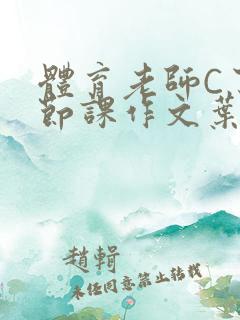 體育老師C
節課作文葉
趙輯
未任同意禁止轉載